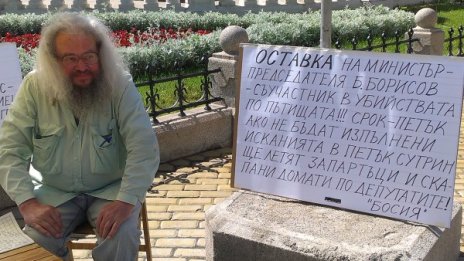 ОСТАВКА НА МИНИСТЪР-
ПРЕДСЕДАТЕЛЯ Б. БОРИСОВ
- СЪУЧАСТНИК В УБИЙСТВАТА
ПО ПЪТИЩАТА!!! СРОК-ПЕТЪК
АКО НЕ БЪДАТ ИЗПЪЛНЕНИ
ИСКАНИЯТА В ПЕТЪК СУТРИН
ЩЕ ЛЕТЯТ ЗАПЪРТЪЦИ И СКА-
ПАНИ ДОМАТИ ПО ДЕПУТАТИТЕ!
"БОСИЯ"